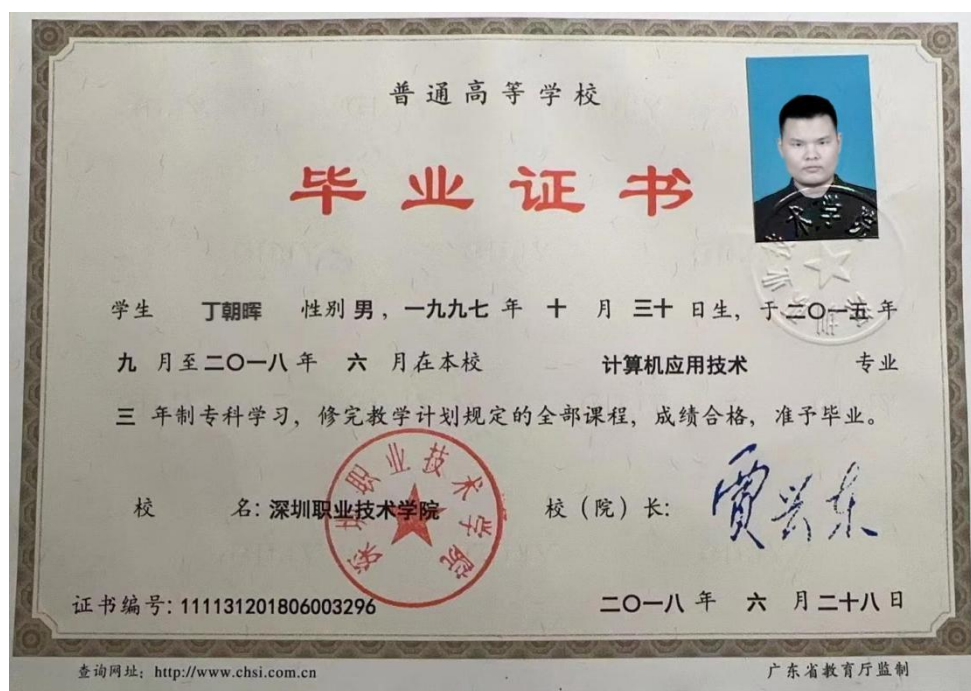 普通高等学校
毕业证书
学生 丁朝晖 性别 男，一九九七 年 十 月 三十 日生，于 二〇一五 年
九 月至 二〇一八 年 六 月在本校 计算机应用技术 专业
三 年制专科学习，修完教学计划规定的全部课程，成绩合格，准予毕业。
校 名：深圳职业技术学院 校（院）长：贾兴东
深圳职业技术学院
证书编号：111131201806003296 二〇一八 年 六 月 二十八 日
查询网址：http://www.chsi.com.cn 广东省教育厅监制